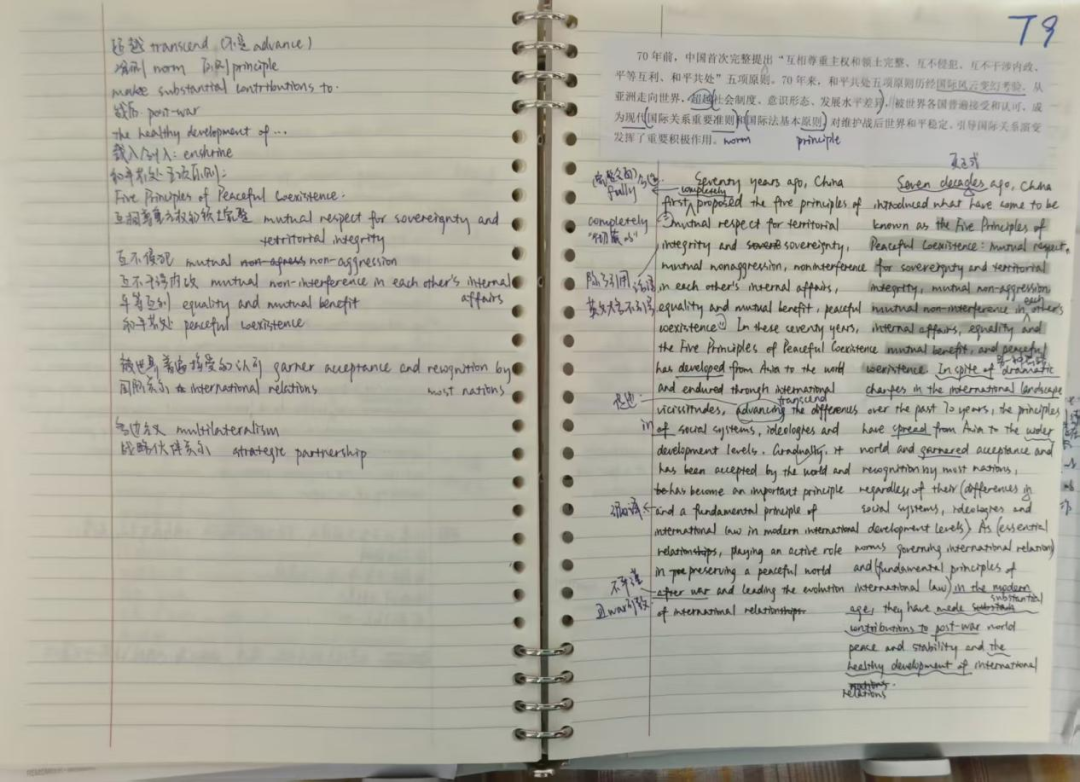 超越 transcend (不是 advance)
准则 norm 原则 principle
make substantial contributions to.
战后 post-war
the healthy development of ...
载入/列入: enshrine
和平共处五项原则:
Five Principles of Peaceful Coexistence.
互相尊重主权和领土完整 mutual respect for sovereignty and
territorial integrity
互不侵犯 mutual non-agress non-aggression
互不干涉内政 mutual non-interference in each other's internal
affairs
平等互利 equality and mutual benefit
和平共处 peaceful coexistence
被世界普遍接受和认可 garner acceptance and recognition by
most nations
国际关系 international relations
多边主义 multilateralism
战略伙伴关系 strategic partnership
T9
70 年前,中国首次完整提出“互相尊重主权和领土完整、互不侵犯、互不干涉内政、
平等互利、和平共处”五项原则。70 年来,和平共处五项原则历经国际风云变幻考验,从
亚洲走向世界,超越社会制度、意识形态、发展水平差异,被世界各国普遍接受和认可,成
为现代国际关系重要准则和国际法基本原则,对维护战后世界和平稳定、引导国际关系演变
发挥了重要积极作用。
norm principle
更正式
fully
completely
Seventy years ago, China
completely
first proposed the five principles of
"mutual respect for territorial
integrity and sovereignty,
mutual nonaggression, noninterference
in each other's internal affairs,
equality and mutual benefit, peaceful
coexistence". In these seventy years,
the Five Principles of Peaceful Coexistence
has developed from Asia to the world
and endured through international
transcend
vicissitudes, advancing the differences
in
of social systems, ideologies and
development levels. Gradually, it
has been accepted by the world and
has become an important principle
and a fundamental principle of
international law in modern international
relationships, playing an active role
in preserving a peaceful world
after war and leading the evolution
of international relationships
Seven decades ago, China
introduced what have come to be
known as the Five Principles of
Peaceful Coexistence: mutual respect
for sovereignty and territorial
integrity, mutual non-aggression
mutual non-interference in each other's
internal affairs, equality and
mutual benefit, and peaceful
coexistence. In spite of dramatic
changes in the international landscape
over the past 70 years, the principles
have spread from Asia to the wider
world and garnered acceptance and
recognition by most nations,
regardless of their (differences in
social systems, ideologies and
development levels). As (essential
norms governing international relations)
and (fundamental principles of
international law) in the modern
substantial
age, they have made
contributions to post-war world
peace and stability and the
healthy development of international
relations